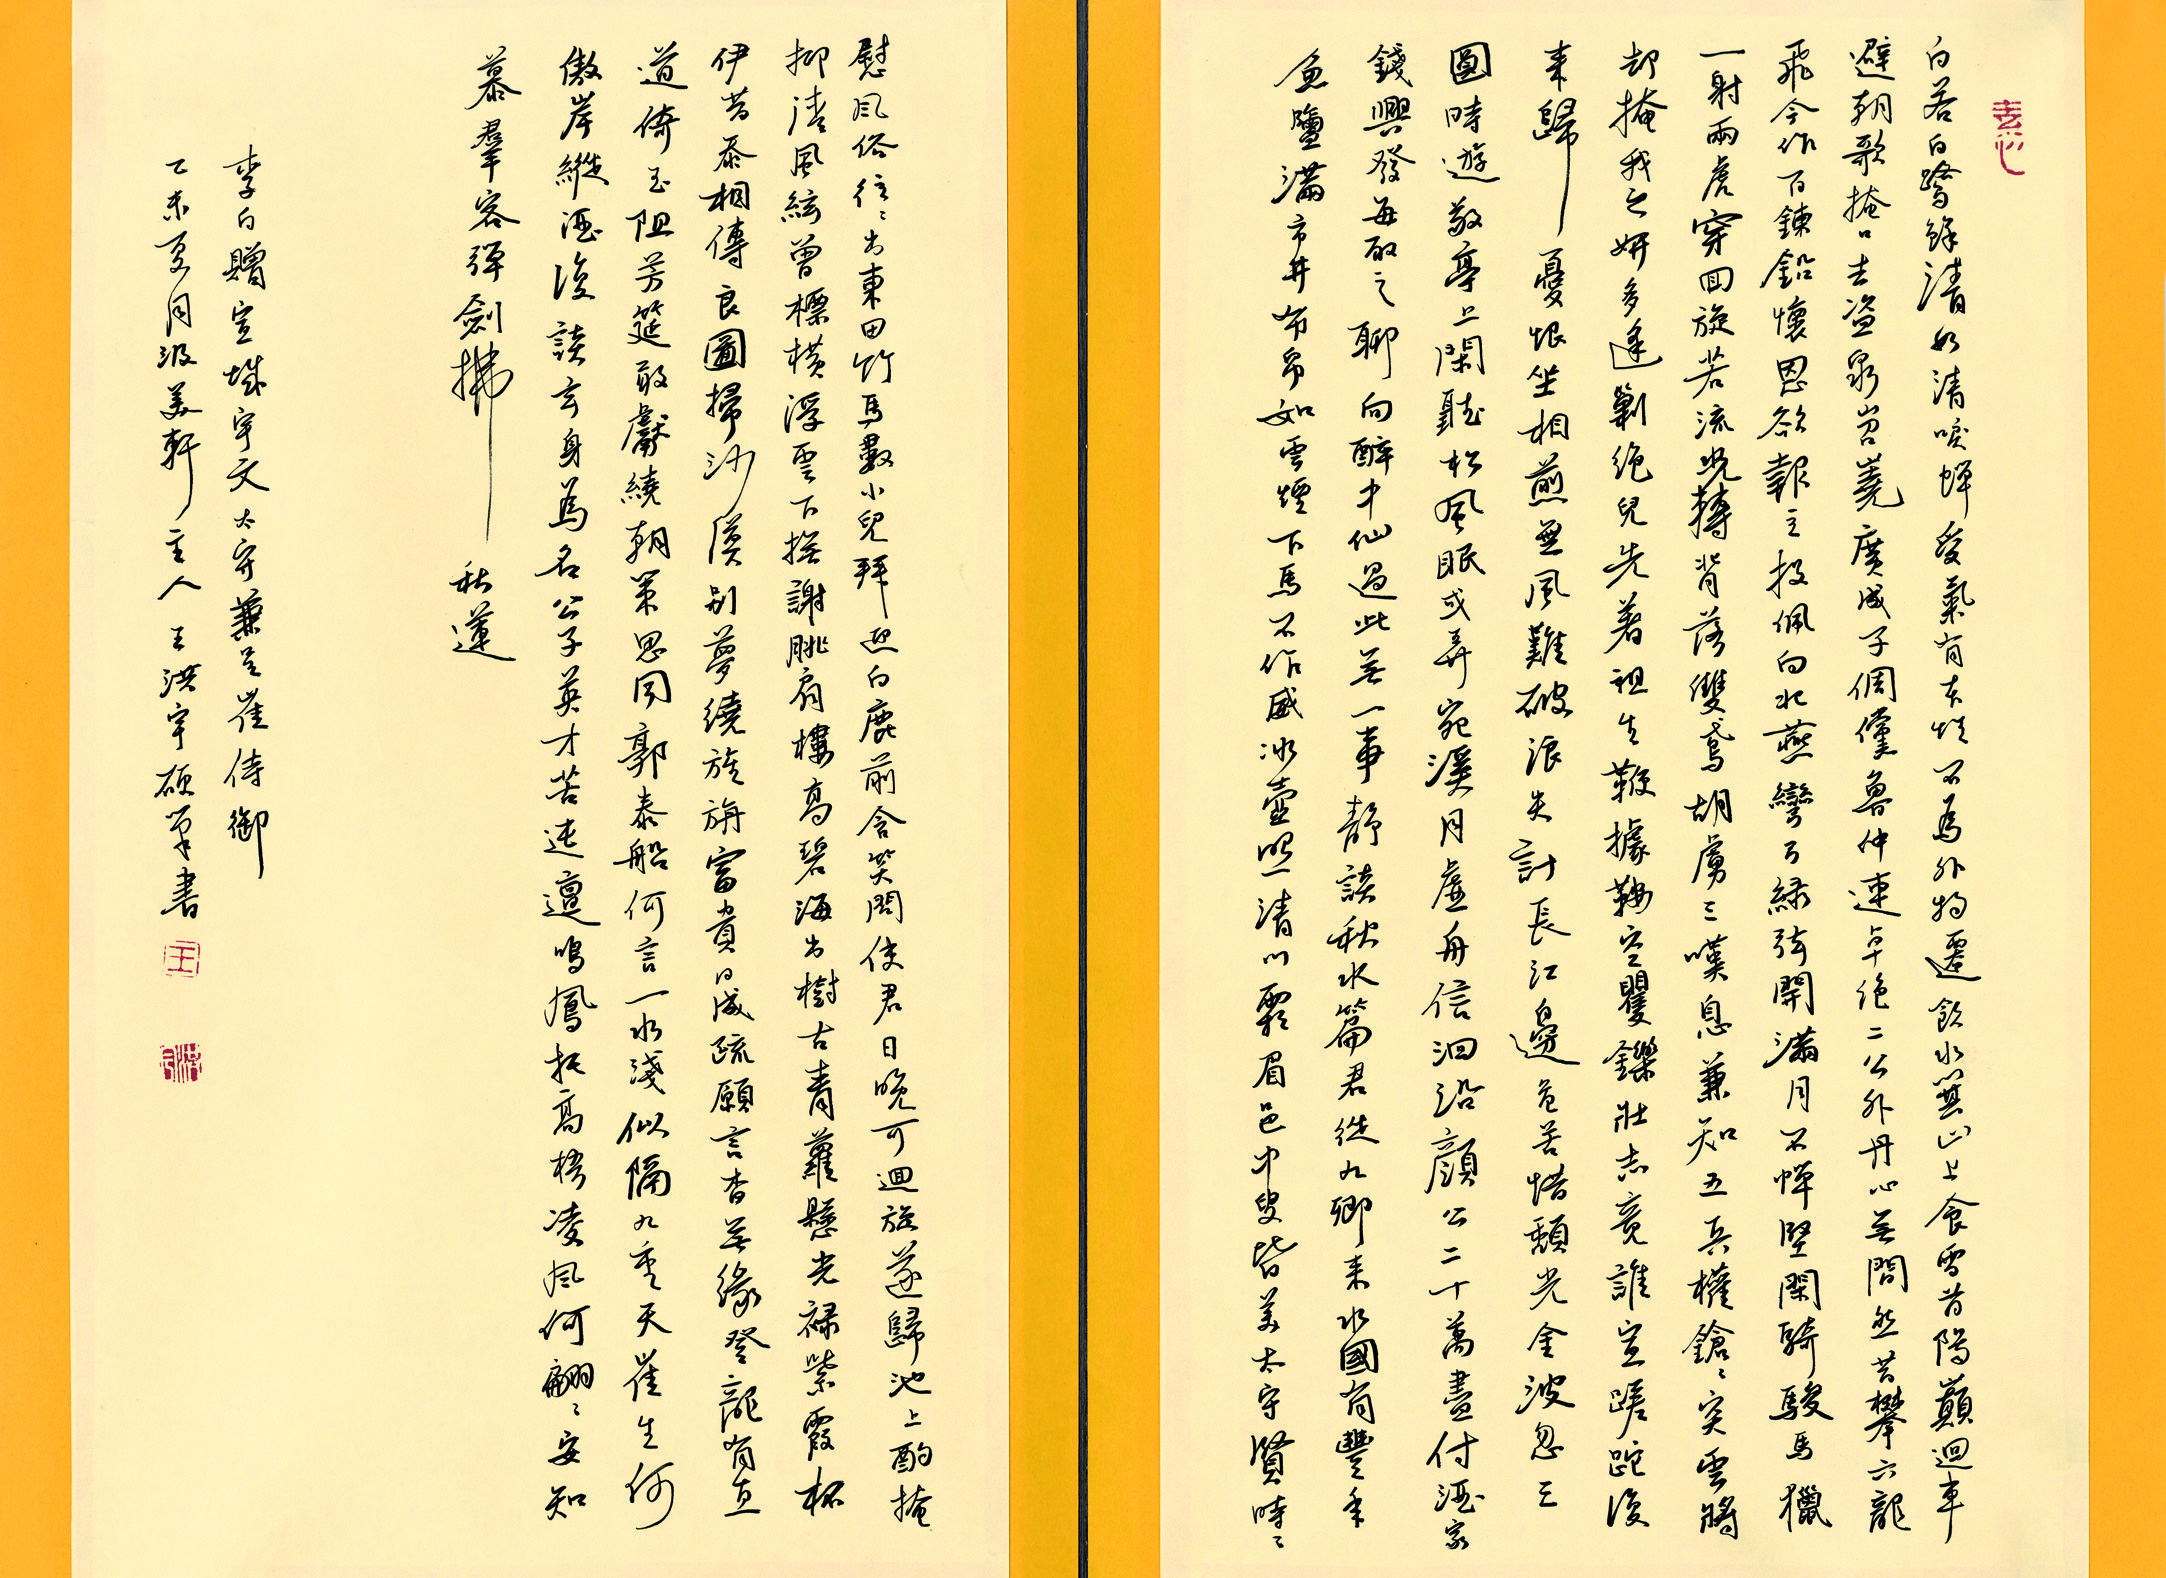 素心
白若白鷺鮮清如清唳蟬受氣有本性不為外物遷飲水箕山上食雪首陽巔迴車
避朝歌掩口去盜泉岧嶤廣成子倜儻魯仲連卓絕二公外丹心無間然昔攀六龍
飛今作百鍊鉛懷恩欲報主投佩向北燕彎弓綠弦開滿月不憚堅閑騎駿馬獵
一射兩虎穿回旋若流光轉背落雙鳶胡虜三嘆息兼知五兵權鎗〻突雲將
却掩我之妍多逢剿絕兒先著祖生鞭據鞍空矍鑠壯志竟誰宣蹉跎復
來歸憂恨坐相煎無風難破浪失計長江邊危苦惜頹光金波忽三
圓時遊敬亭上閑聽松風眠或弄宛溪月虛舟信洄沿顏公二十萬盡付酒家
錢興發每取之聊向醉中仙過此無一事靜談秋水篇君從九卿來水國有豐年
魚鹽滿市井布帛如雲煙下馬不作威冰壺照清川霜眉邑中叟皆美太守賢時〻
慰風俗往〻出東田竹馬數小兒拜迎白鹿前含笑問使君日晚可迴旋遂歸池上酌掩
抑清風絃曾標橫浮雲下撫謝朓肩樓高碧海出樹古青蘿懸光祿紫霞杯
伊昔忝相傳良圖掃沙漠別夢繞旌旃富貴日成疏願言杳無緣登龍有直
道倚玉阻芳筵敢獻繞朝策思同郭泰船何言一水淺似隔九重天崔生何
傲岸縱酒復談玄身為名公子英才苦迍邅鳴鳳托高梧凌風何翩〻安知
慕羣客彈劍拂秋蓮
李白贈宣城宇文太守兼呈崔侍御
乙未夏月波美軒主人王洪宇硬筆書
王